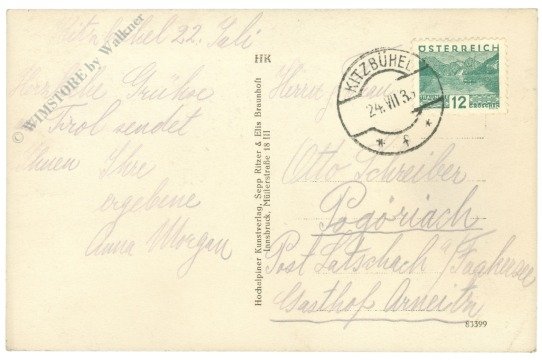 Kitzbühel 22. Juli
Grüße
Tirol sendet
Ihnen Ihre
ergebene
Anna Morgan
© WIMSTORE by Walkner
HK
Hochalpiner Kunstverlag, Sepp Ritzer & Elis Braunhoft
Innsbruck, Müllerstraße 18 III
ÖSTERREICH
12
GROSCHEN
KITZBÜHEL
24.VII.3
* f *
Otto Schreiber
Pogöriach
Post Latschach / Faakersee
Gasthof Arneitz
83399